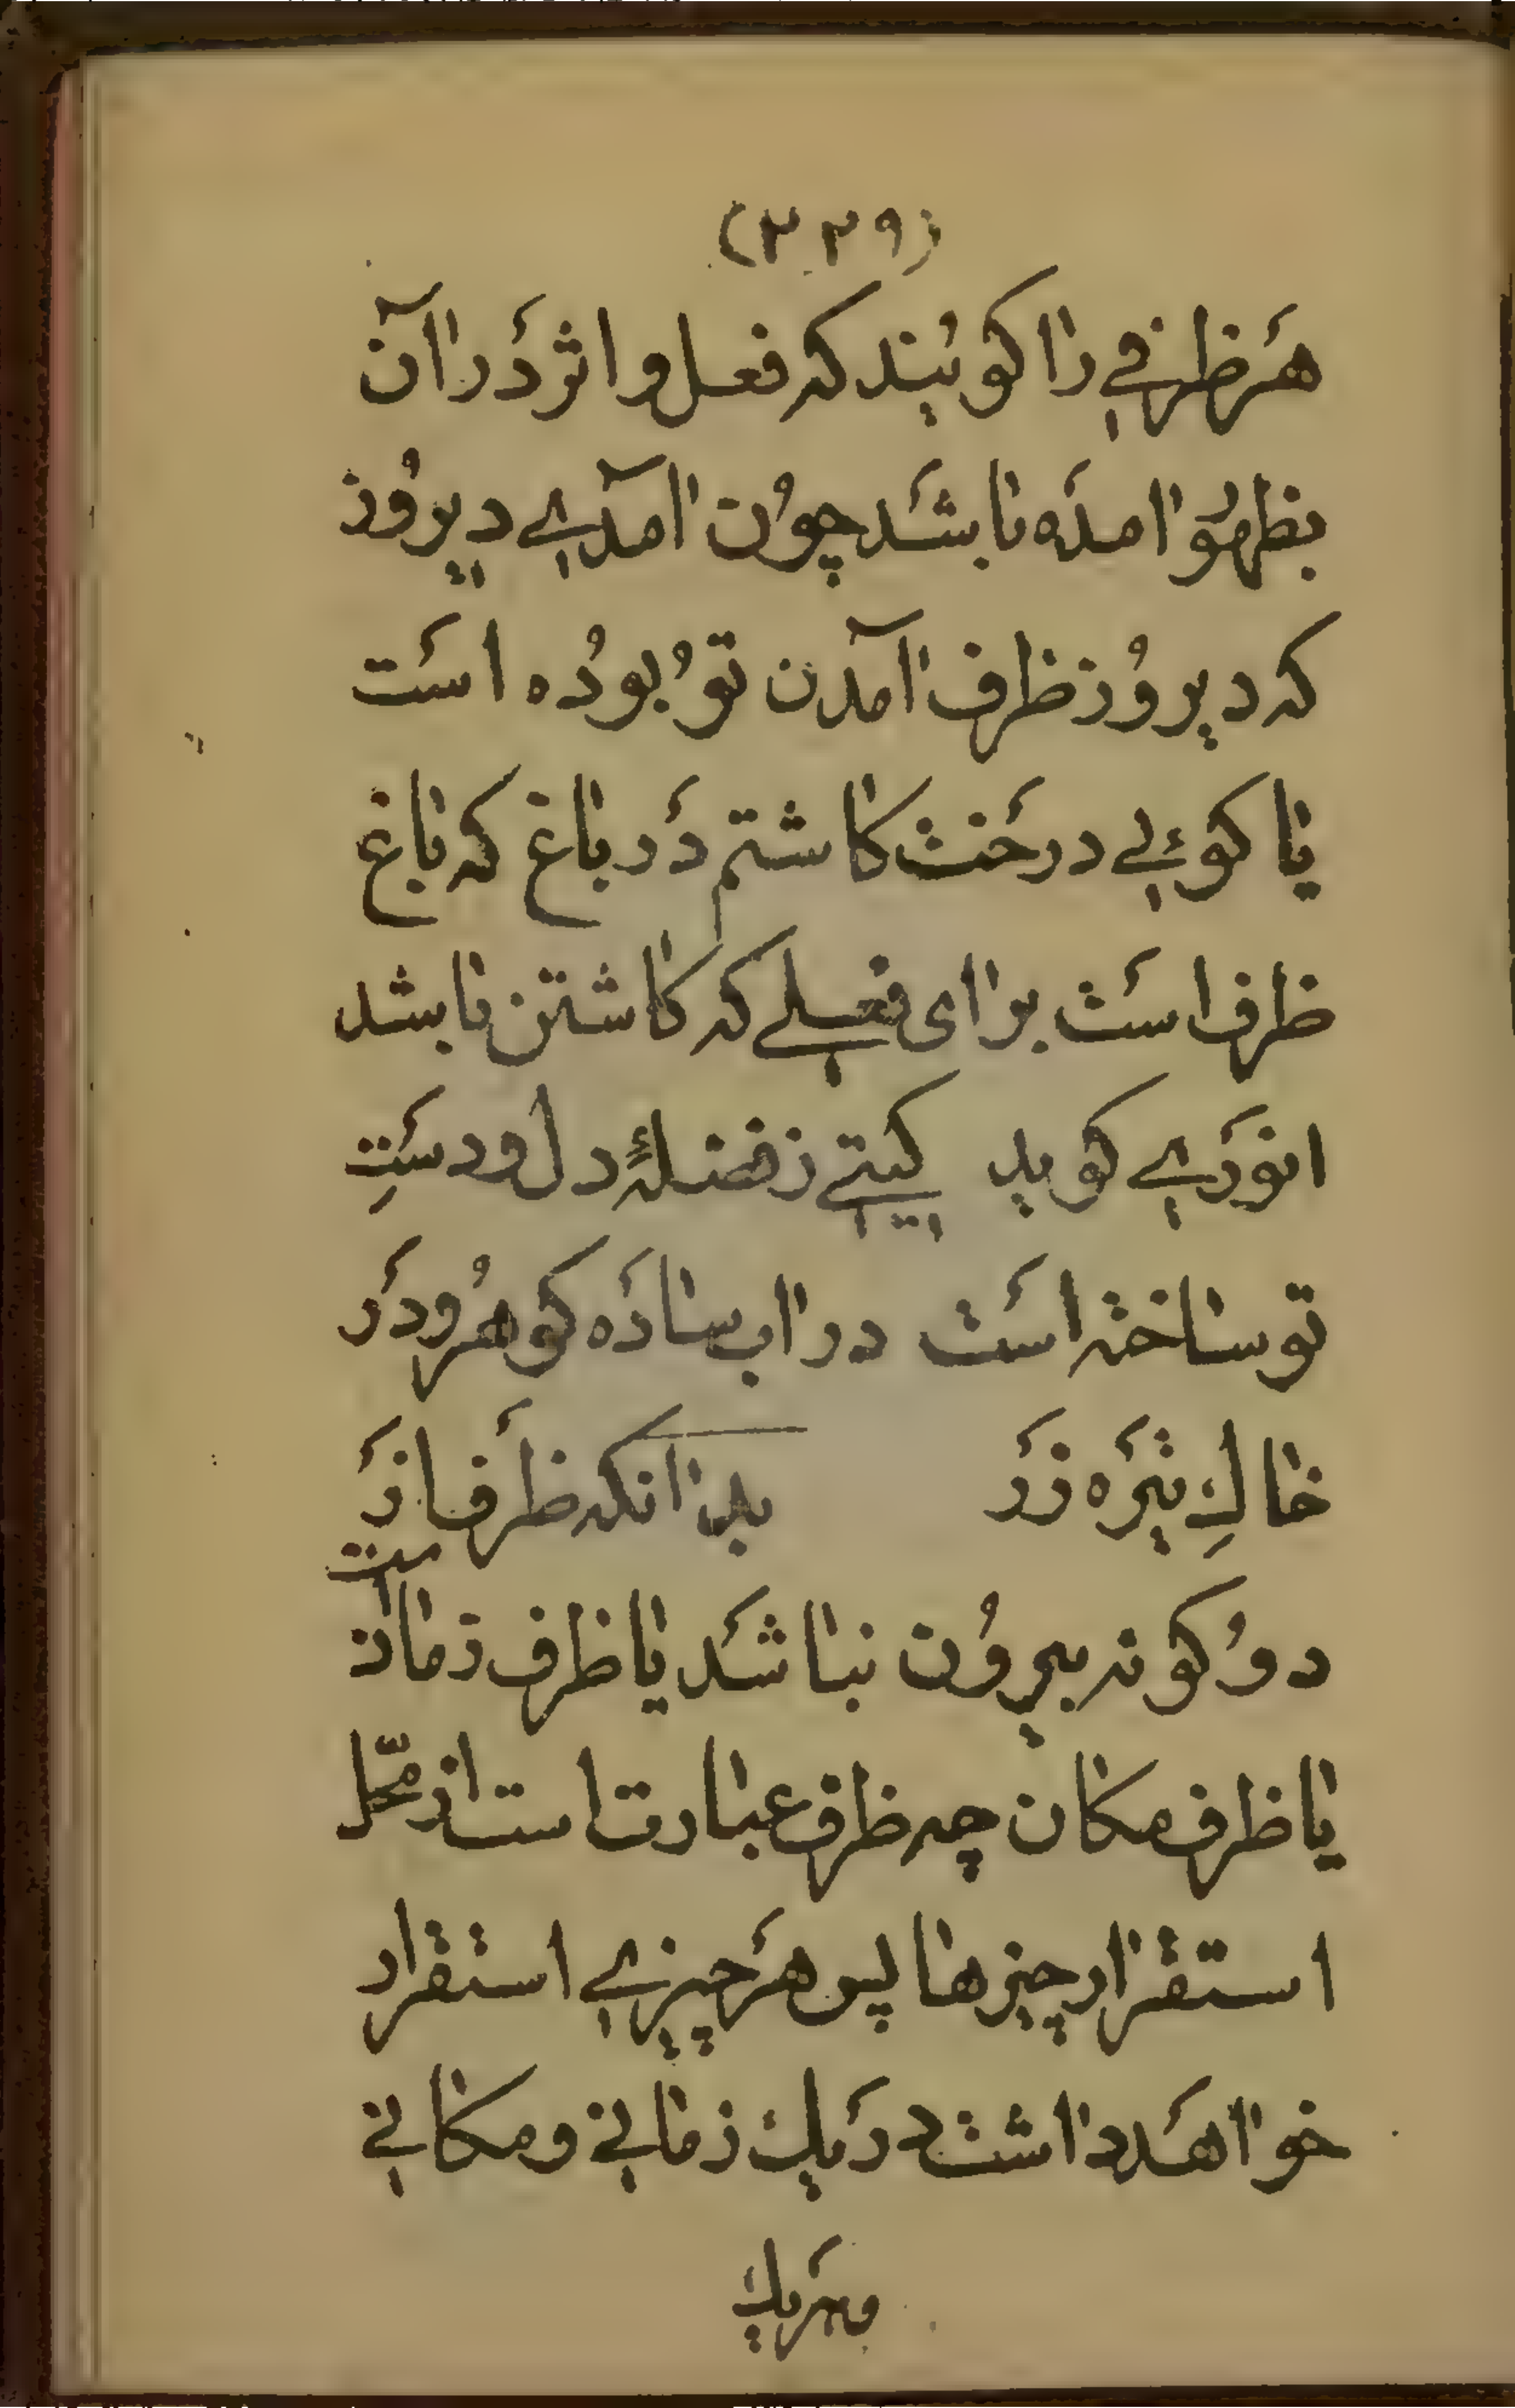 (۲۳۹)
هَر ظرفي را كويَند كه فعل و اثر دَر اآن
بظهوُر امدَه باشَد چوُن اآمدَي ديروُز
كه ديروُز ظرف اآمدن توُ بوُده است
يا كوئي درخَت كاشتم دَر باغ كه باغ
ظرف است براى فعلي كه كاشتن باشد
انورَي كويد كيتي ز فضلهٔ دل و دستِ
تو ساخته است در اب ساده كوهرُ و دَر
خاكِ تيَره زَر بدانكه ظرف از
دوُ كونه بيروُن نباشَد يا ظرف زمان است
يا ظرف مكان چه ظرف عبارت است از محّل
استقرار چيزها پس هَر چيزي استقرار
خواهد داشت در يك زماني و مكاني
و هر يك